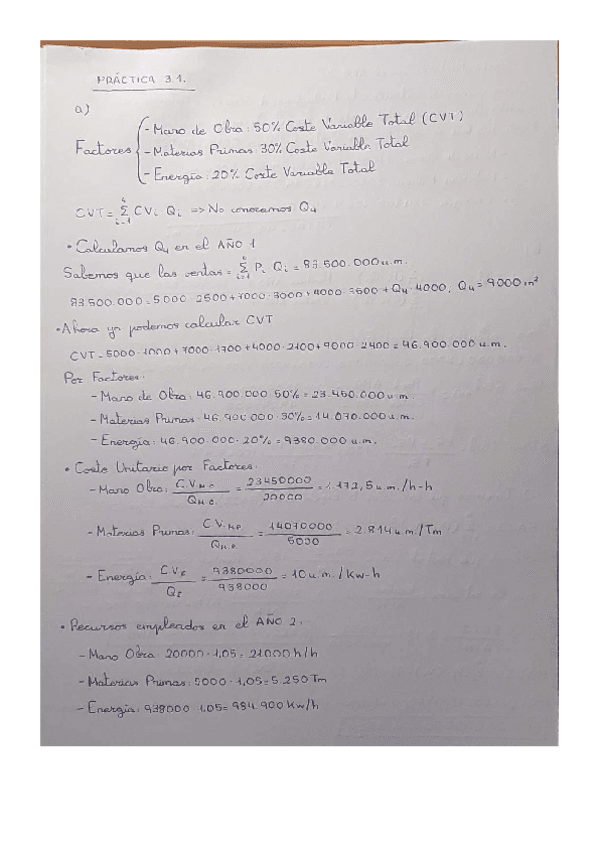 PRÁCTICA 3.1.
a)
Factores
- Mano de Obra: 50% Coste Variable Total (CVT)
- Materias Primas: 30% Coste Variable Total
- Energía: 20% Coste Variable Total
CVT = 4 Σ i=1 CVi Qi => No conocemos Q4
• Calculamos Q4 en el AÑO 1
Sabemos que las ventas = 4 Σ i=1 Pi Qi = 83.500.000 u.m.
83.500.000 = 5000 · 2500 + 7000 · 3000 + 4000 · 3500 + Q4 · 4000, Q4 = 9000 m²
• Ahora ya podemos calcular CVT
CVT = 5000 · 1000 + 7000 · 1700 + 4000 · 2100 + 9000 · 2400 = 46.900.000 u.m.
Por Factores:
- Mano de Obra: 46.900.000 · 50% = 23.450.000 u.m.
- Materias Primas: 46.900.000 · 30% = 14.070.000 u.m.
- Energía: 46.900.000 · 20% = 9380.000 u.m.
• Coste Unitario por Factores:
- Mano Obra: C.V.M.O. / QM.O. = 23450000 / 20000 = 1.172,5 u.m./h-h
- Materias Primas: C.V.MP / QM.P. = 14070000 / 5000 = 2.814 u.m/Tm
- Energía: CVE / QE = 9380000 / 938000 = 10 u.m./kw-h
• Recursos empleados en el AÑO 2:
- Mano Obra: 20000 · 1,05 = 21000 h/h
- Materias Primas: 5000 · 1,05 = 5.250 Tm
- Energía: 938000 · 1,05 = 984.900 Kw/h